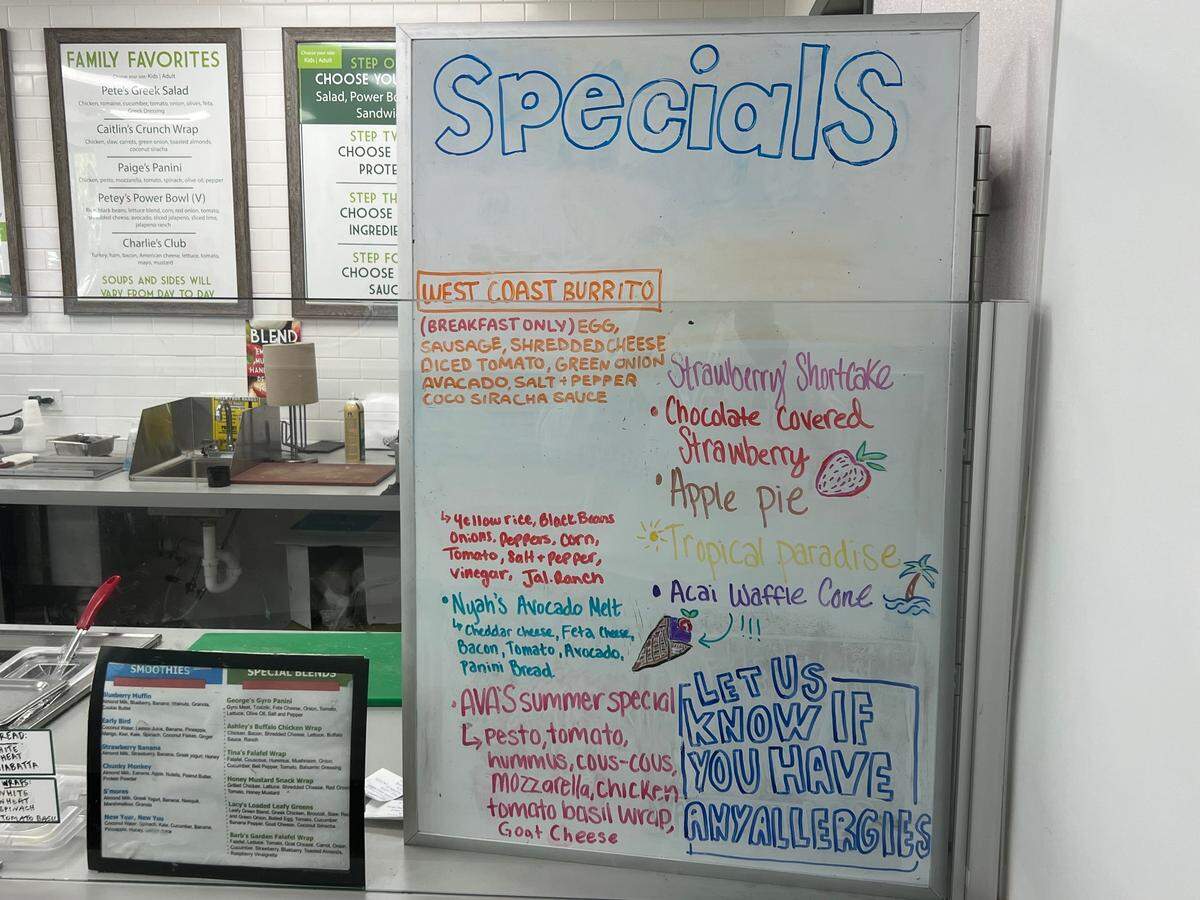 FAMILY FAVORITES
Choose your size: Kids | Adult
Pete's Greek Salad
Chicken, romaine, cucumber, tomato, onion, olives, feta,
Greek Dressing
Caitlin's Crunch Wrap
Chicken, slaw, carrots, green onion, toasted almonds,
coconut siracha
Paige's Panini
Chicken, pesto, mozzarella, tomato, spinach, olive oil, pepper
Petey's Power Bowl (V)
Rice, black beans, lettuce blend, corn, red onion, tomato,
shredded cheese, avocado, sliced jalapeno, sliced lime,
jalapeno ranch
Charlie's Club
Turkey, ham, bacon, American cheese, lettuce, tomato,
mayo, mustard
SOUPS AND SIDES WILL
VARY FROM DAY TO DAY
Choose your size:
Kids | Adult
STEP O
CHOOSE YOU
Salad, Power Bo
Sandwi
STEP TV
CHOOSE
PROTE
STEP TH
CHOOSE
INGREDIE
STEP FO
CHOOSE
SAUC
BLEND
Specials
WEST COAST BURRITO
(BREAKFAST ONLY) EGG,
SAUSAGE, SHREDDED CHEESE
DICED TOMATO, GREEN ONION
AVACADO, SALT + PEPPER
COCO SIRACHA SAUCE
↳ Yellow rice, Black Beans
Onions, Peppers, Corn,
Tomato, Salt + Pepper,
Vinegar, Jal. Ranch
• Nyah's Avocado Melt
↳ Cheddar cheese, Feta Cheese,
Bacon, Tomato, Avocado,
Panini Bread
• AVA'S summer special
↳ pesto, tomato,
hummus, cous-cous,
mozzarella, chicken
tomato basil wrap,
Goat Cheese
• Strawberry Shortcake
• Chocolate Covered
Strawberry
• Apple pie
Tropical paradise
• Acai Waffle Cone
!!!
LET US
KNOW IF
YOU HAVE
ANY ALLERGIES
SMOOTHIES
Blueberry Muffin
Almond Milk, Blueberry, Banana, Walnuts, Granola,
Early Bird
Coconut Water, Lemon Juice, Banana, Pineapple,
Mango, Kiwi, Kale, Spinach, Coconut Flakes, Ginger
Strawberry Banana
Almond Milk, Strawberry, Banana, Greek yogurt, Honey
Chunky Monkey
Almond Milk, Banana, Apple, Nutella, Peanut Butter,
Protein Powder
S'mores
Almond Milk, Greek Yogurt, Banana, Nesquik,
Marshmallow, Granola
New Year, New You
Coconut Water, Spinach, Kale, Cucumber, Banana,
Pineapple, Honey,
SPECIAL BLENDS
George's Gyro Panini
Gyro Meat, Tzatziki, Feta Cheese, Onion, Tomato,
Lettuce, Olive Oil, Salt and Pepper
Ashley's Buffalo Chicken Wrap
Chicken, Bacon, Shredded Cheese, Lettuce, Buffalo
Sauce, Ranch
Tina's Falafel Wrap
Falafel, Couscous, Hummus, Mushroom, Onion,
Cucumber, Bell Pepper, Tomato, Balsamic Dressing
Honey Mustard Snack Wrap
Grilled Chicken, Lettuce, Shredded Cheese, Red Onion,
Tomato, Honey Mustard
Lacy's Loaded Leafy Greens
Leafy Green Blend, Greek Chicken, Broccoli,
and Green Onion, Boiled Egg, Tomato, Cucumber,
Banana Pepper, Goat Cheese, Coconut Siracha
Barb's Garden Falafel Wrap
Falafel, Lettuce, Tomato, Goat Cheese, Carrot, Onion,
Cucumber, Strawberry, Blueberry, Toasted Almonds,
Raspberry Vinaigrette
READ:
HITE
HEAT
IABATTA
WRAPS:
WHITE
WHEAT
SPINACH
TOMATO BASIL